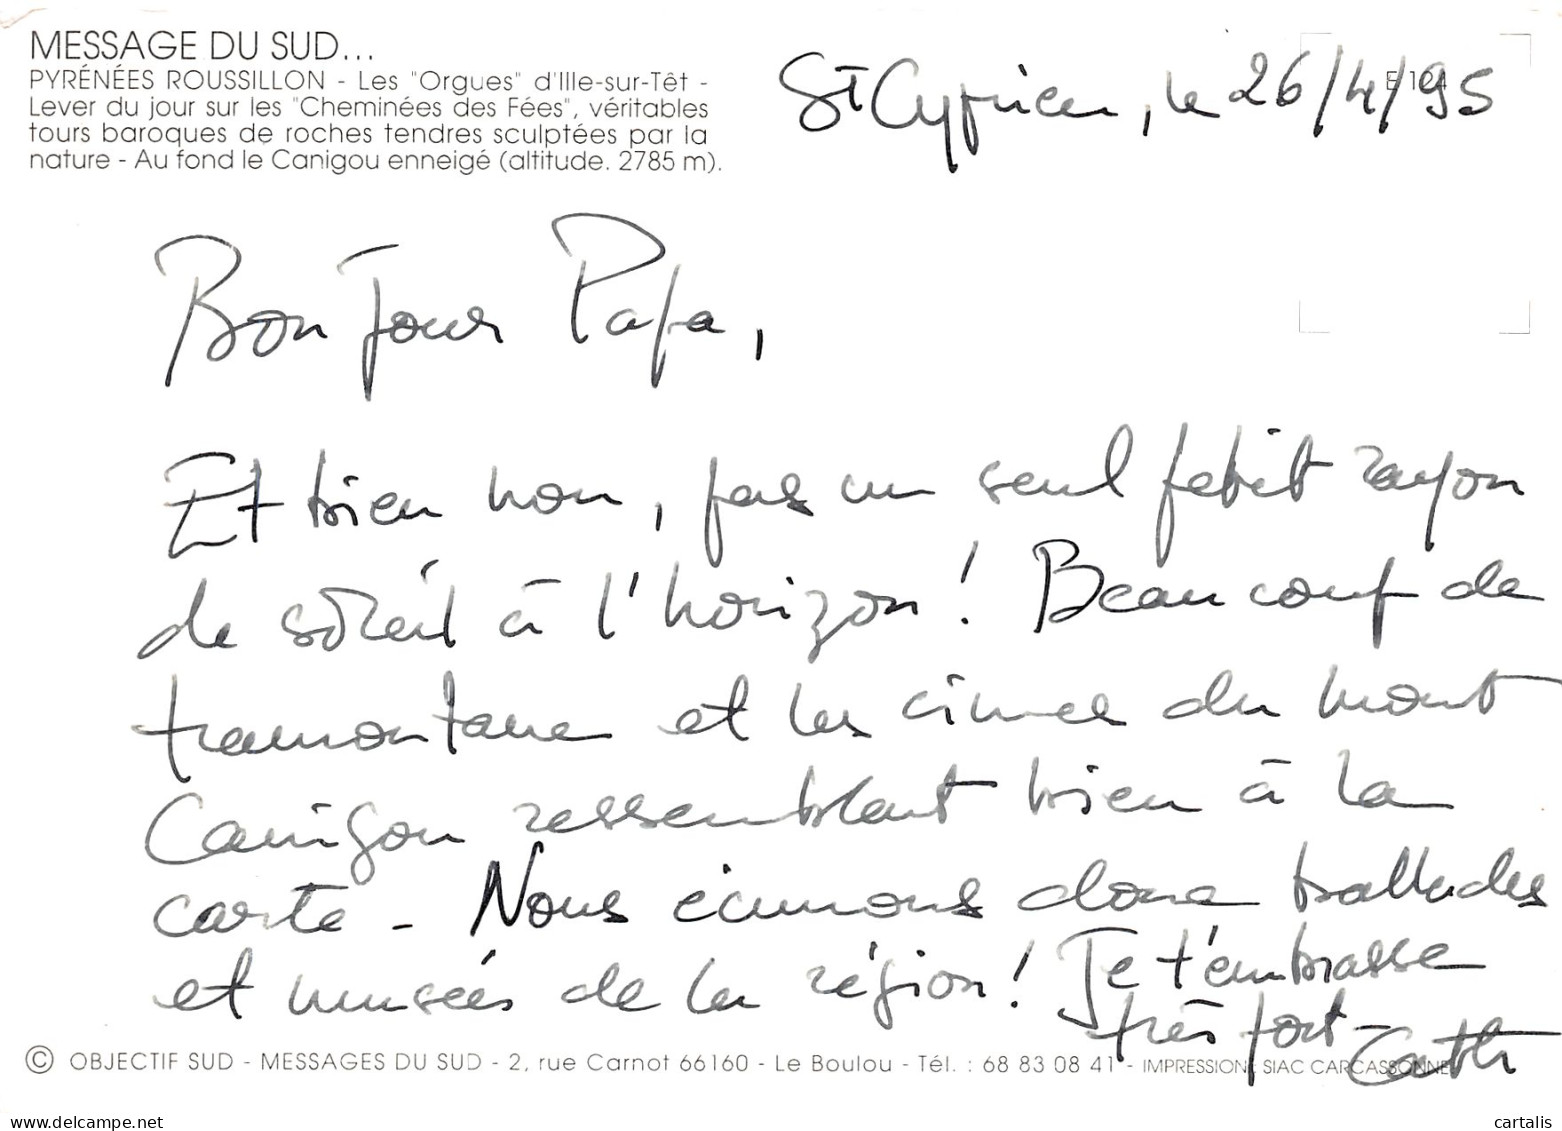 MESSAGE DU SUD...
PYRÉNÉES ROUSSILLON - Les "Orgues" d'Ille-sur-Têt -
Lever du jour sur les "Cheminées des Fées", véritables
tours baroques de roches tendres sculptées par la
nature - Au fond le Canigou enneigé (altitude. 2785 m).
St Cyprien, le 26/4/95
Bonjour Papa,
Et bien non, pas un seul petit rayon
de soleil à l'horizon! Beaucoup de
tramontane et les cimes du mont
Canigou ressemblent bien à la
carte - Nous écumons donc ballades
et musées de la région! Je t'embrasse
très fort - Cath
© OBJECTIF SUD - MESSAGES DU SUD - 2, rue Carnot 66160 - Le Boulou - Tél. : 68 83 08 41 - IMPRESSION: SIAC CARCASSONNE
www.delcampe.net
cartalis